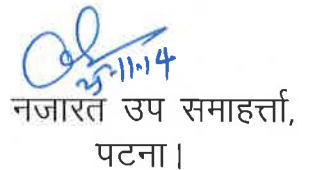 25-11-14
नजारत उप समाहर्त्ता,
पटना।